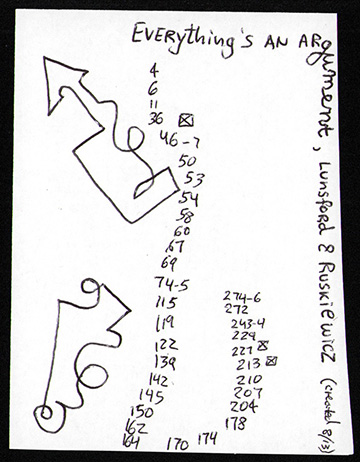 EVERYthing's AN ARgument, LUNSFORD & RUSKIEWICZ (created 8/13)
4
6
11
36 ☒
46-7
50
53
54
58
60
67
69
74-5
115
119
122
139
142
145
150
162
164
170
174
178
204
207
210
213 ☒
227 ☒
229
243-4
272
274-6